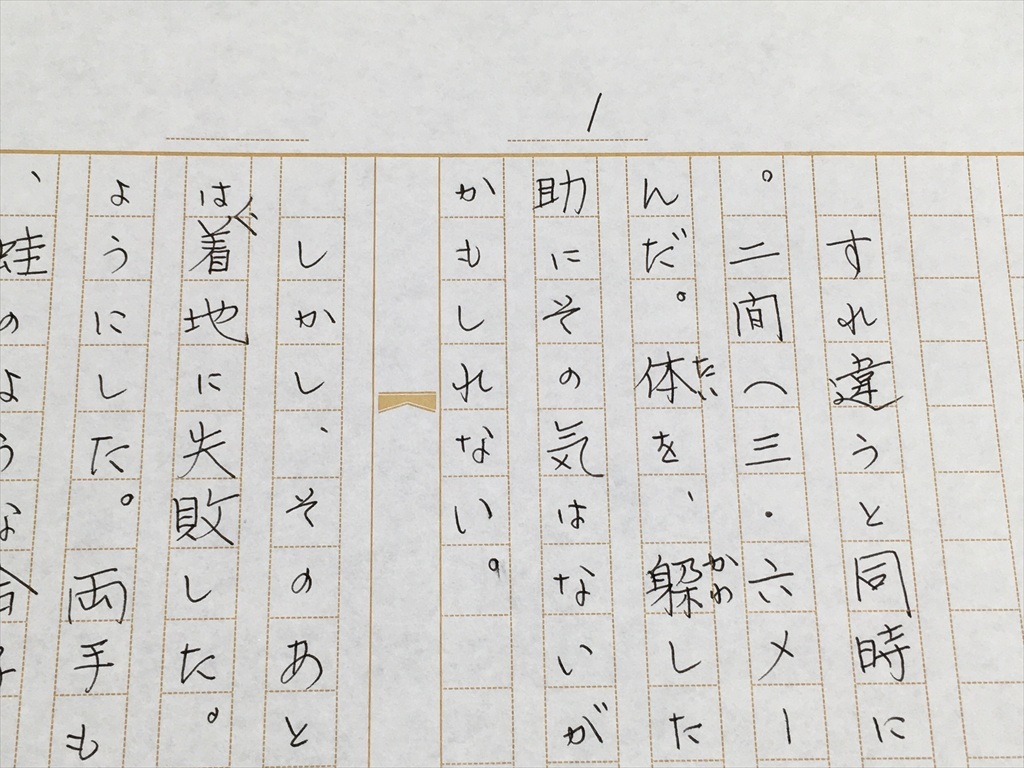 1
すれ違うと同時に
。二間（三・六メー
んだ。体を、躱した
たい
かわ
助にその気はないが
かもしれない。
しかし、そのあと
は着地に失敗した。
ようにした。両手も
、蛙のような